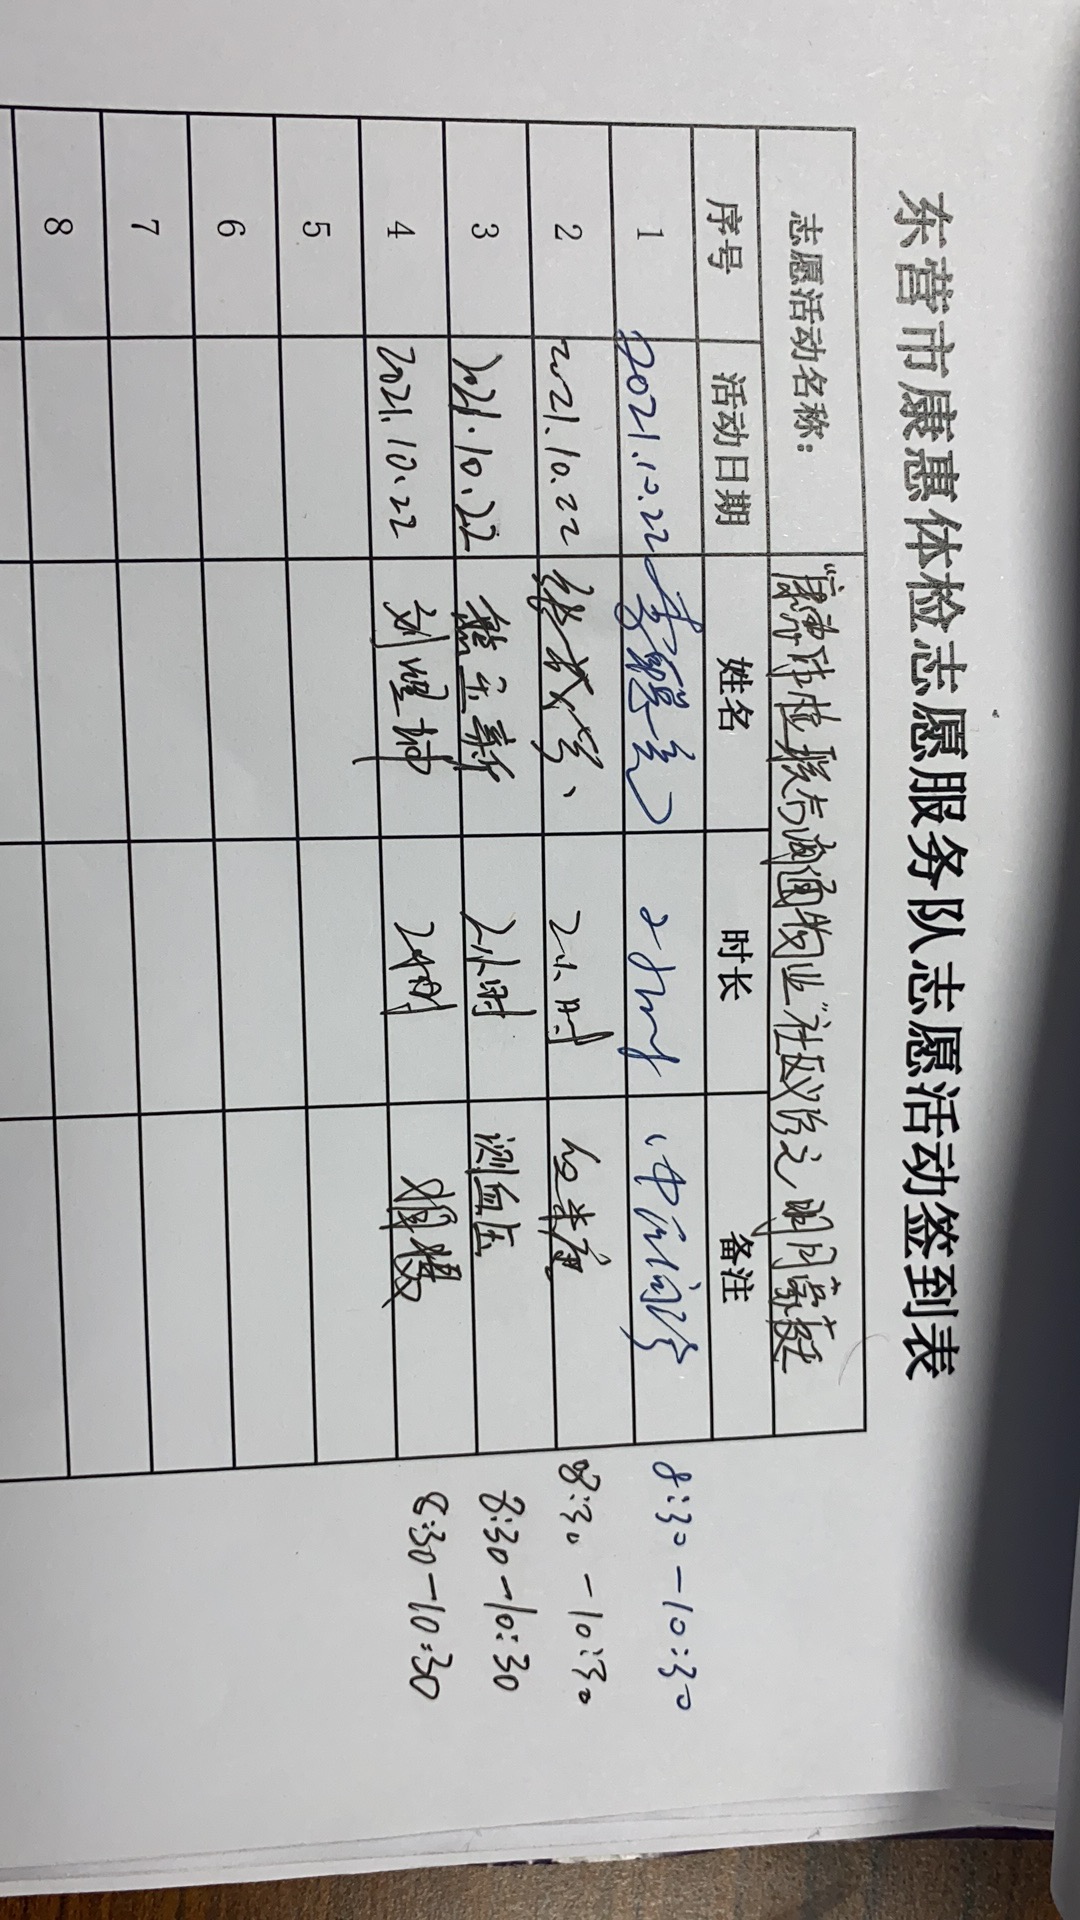 东营市康惠体检志愿服务队志愿活动签到表
志愿活动名称： “康惠体检联与海通物业”社区义诊之明月豪庭
序号 活动日期 姓名 时长 备注
1 2021.10.22 2小时 中医问诊 8:30-10:30
2 2021.10.22 2小时 8:30-10:30
3 2021.10.22 2小时 测血压 8:30-10:30
4 2021.10.22 刘 2小时 8:30-10:30
5
6
7
8